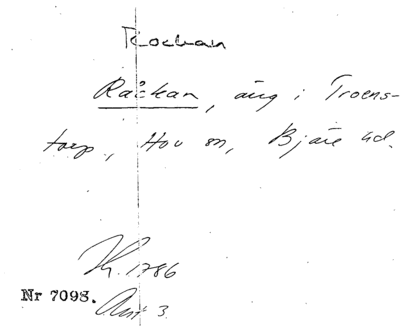 Rockan
Råckan, äng i Troens-
torp, Hov sn, Bjäre hd.
K. 1786
Nr 7098.
Akt 3.